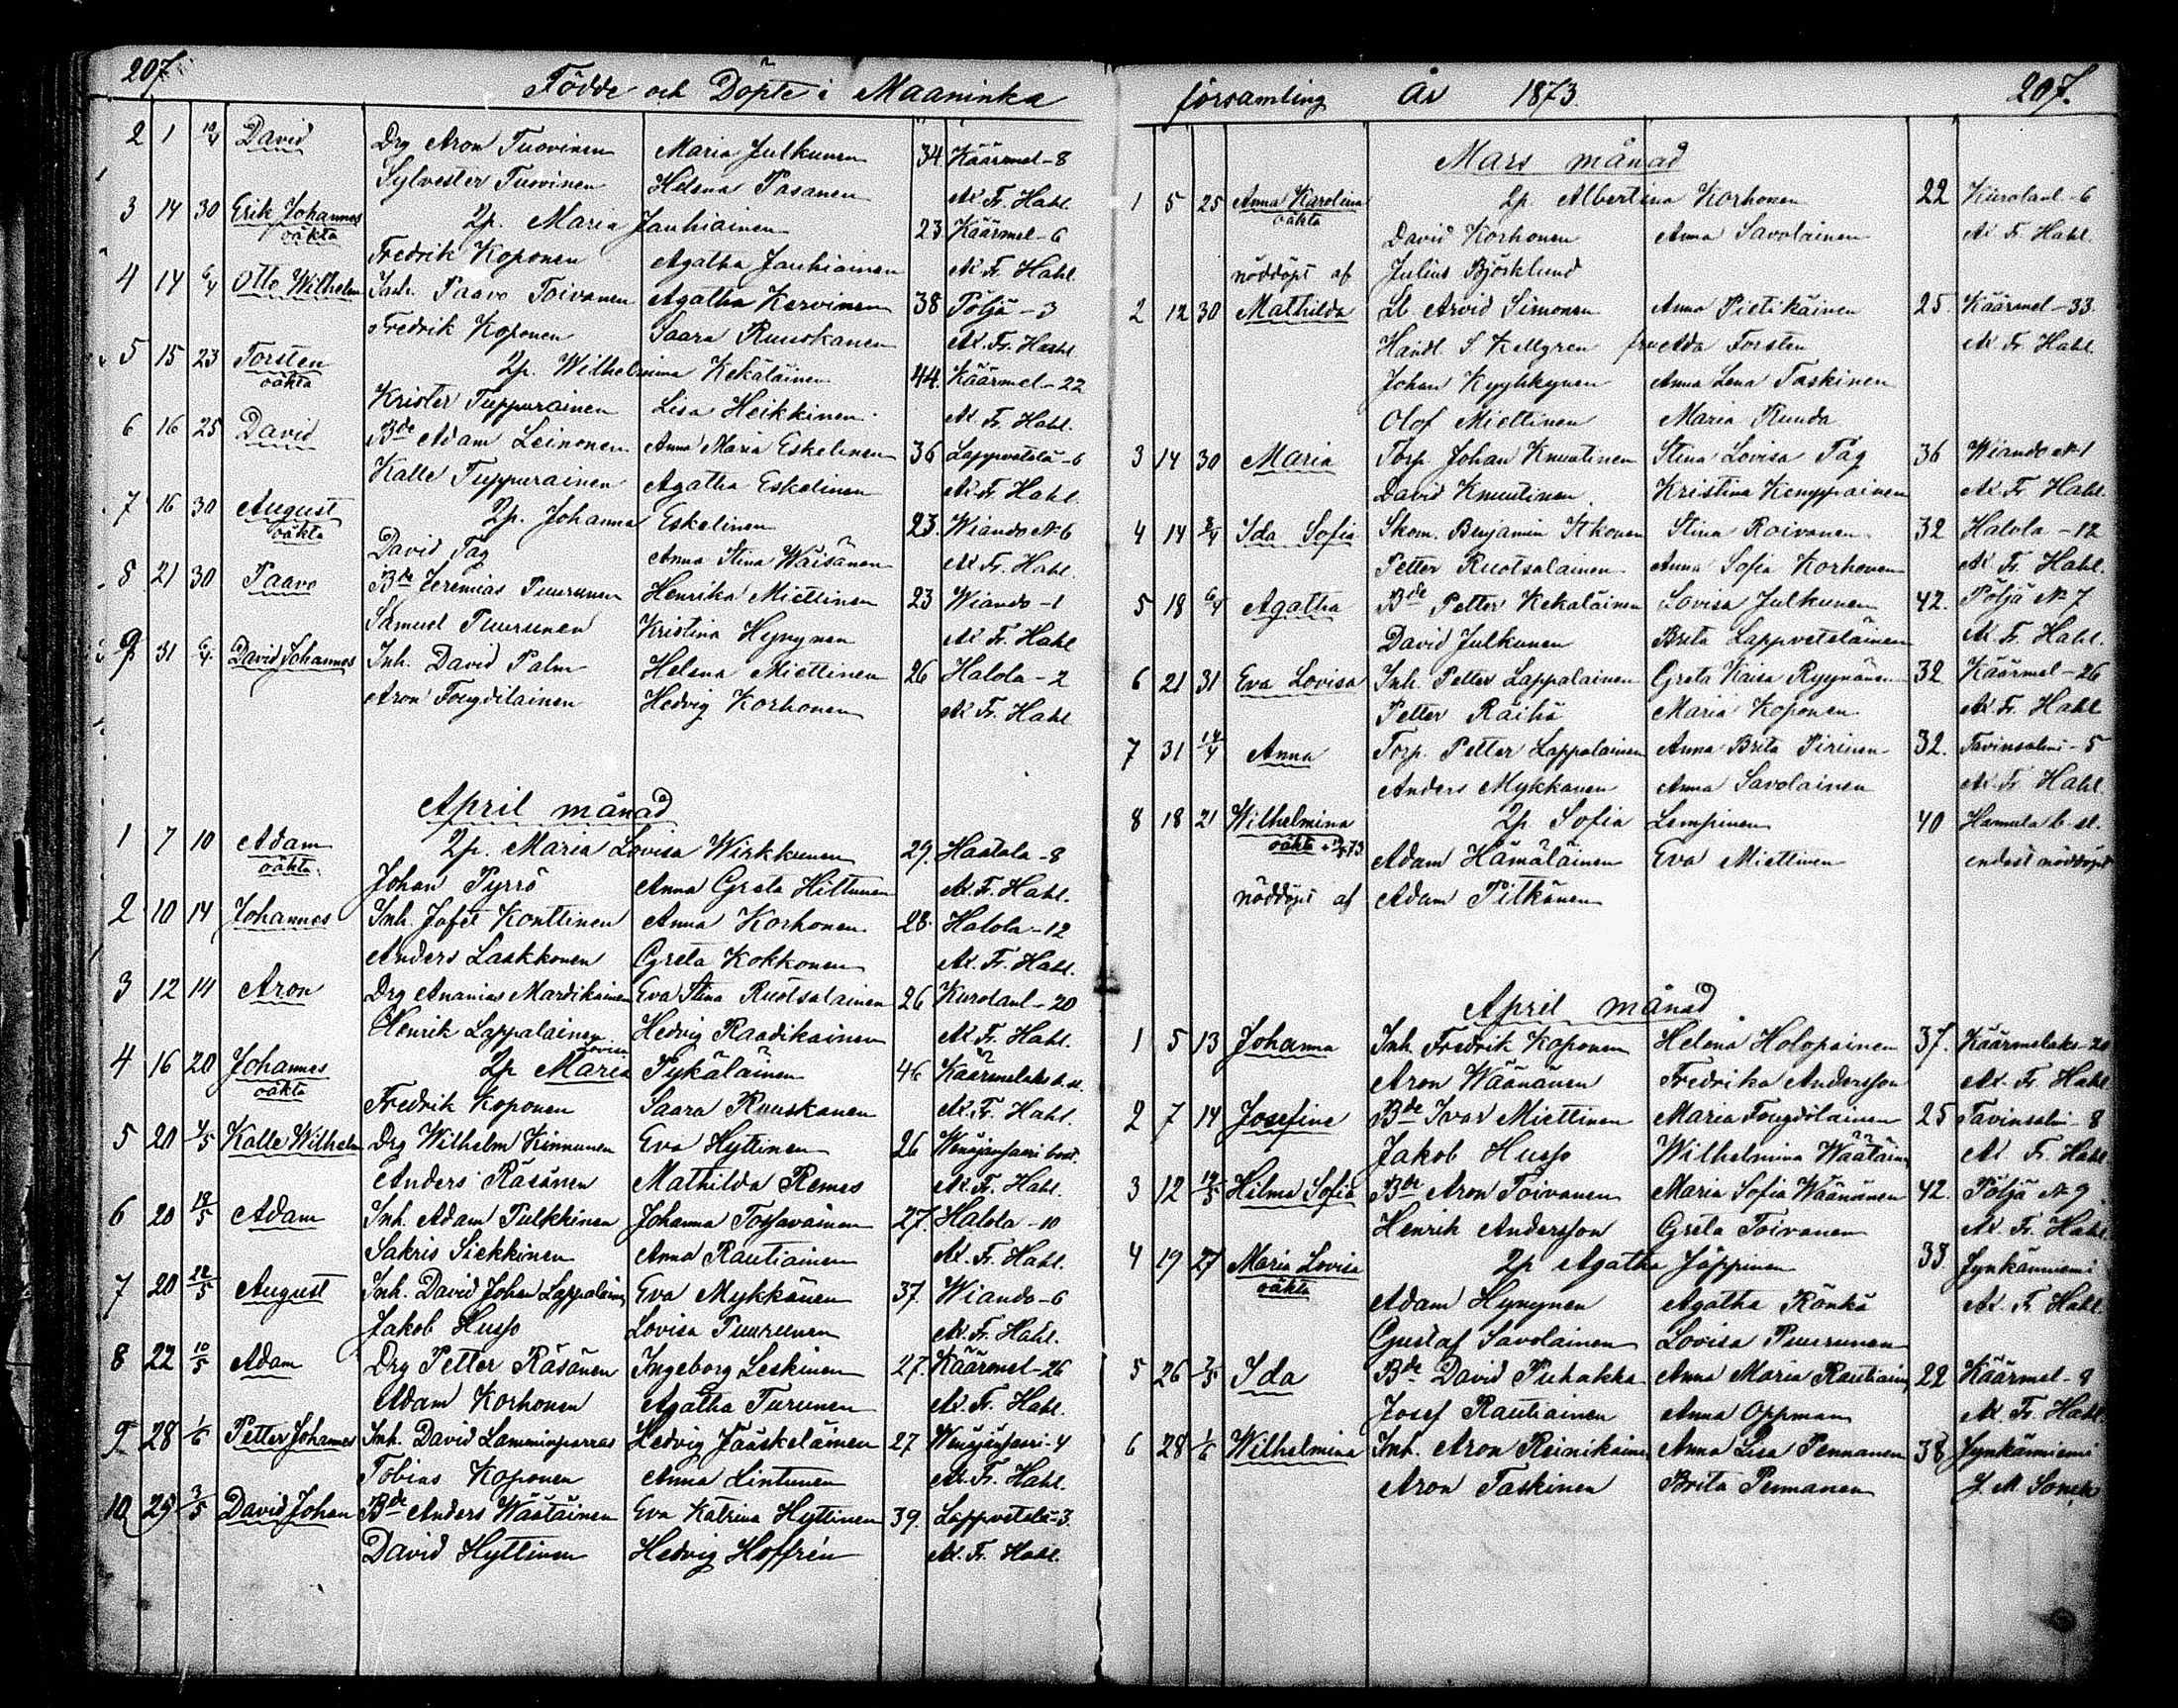 207.
Födde och Döpte i Maaninka
2 1 10/4 David Drg Aron Tuovinen Maria Julkunen 34 Käärmel-8
Sylvester Tuovinen Helena Pasanen At. Fr. Hahl.
3 14 30 Erik Johannes 2p. Maria Jauhiainen 23 Käärmel-6
oäkta Fredrik Koponen Agatha Jauhiainen At. Fr. Hahl.
4 14 6/4 Otto Wilhelm Inh. Paavo Toivanen Agatha Kervinen 38 Pöljä-3
Fredrik Koponen Saara Ruuskanen At. Fr. Hahl
5 15 23 Torsten 2p. Wilhelmina Kekäläinen 44. Käärmel-22
oäkta Krister Tuppurainen Lisa Heikkinen At. Fr. Hahl.
6 16 25 David Bde Adam Leinonen Anna Maria Eskelinen 36 Lappvetelä-6
Kalle Tuppurainen Agatha Eskelinen At. Fr. Hahl.
7 16 30 August 2p. Johanna Eskelinen 23. Wiando No 6
oäkta David Påg Anna Stina Wäisänen At. Fr. Hahl.
8 21 30 Paavo Bde Jeremias Puurunen Henrika Miettinen 23 Wiando-1
Samuel Puurunen Kristina Hynynen At. Fr. Hahl
9 31 6/4. David Johannes Inh. David Palm Helena Miettinen 26 Halola-2
Aron Fougdilainen Hedvig Korhonen At. Fr. Hahl
April månad
1 7 10 Adam 2p. Maria Lovisa Wirkkunen 29. Haatala-8
oäkta. Johan Pyrrö Anna Greta Hiltunen At. F. Hahl.
2 10 14 Johannes Inh. Jafet Konttinen Anna Korhonen 28. Halola-12
Anders Laakkonen Greta Kokkonen At. Fr. Hahl.
3 12 14 Aron Drg Ananias Mardikainen Eva Stina Ruotsalainen 26 Kurolanl-20
Henrik Lappalainen Hedvig Raadikainen At. Fr. Hahl.
4 16 20 Johannes 2p Maria Lovisa Pykäläinen 46 Käärmelaks b. st.
oäkta Fredrik Koponen Saara Ruuskanen At. Fr. Hahl.
5 20 4/5 Kalle Wilhelm Drg Wilhelm Kinnunen Eva Hyttinen 26 Wenäjänsaari
Anders Räsänen Mathilda Remes At. Fr. Hahl.
6 20 18/5 Adam Inh. Adam Pulkkinen Johanna Tossavainen 27. Halola-10
Sakris Siekkinen Anna Rautiainen At. Fr. Hahl.
7 20 22/5 August Inh. David Johan Lappalainen Eva Mykkänen 37. Wiando-6
Jakob Husso Lovisa Puurunen At. Fr. Hahl.
8 22 10/5 Adam Drg Petter Räsänen Ingeborg Leskinen 27. Käärmel-26
Adam Korhonen Agatha Turunen At. Fr. Hahl.
9 28 1/6 Petter Johannes Inh. David Lamminparras Hedvig Jääskeläinen 27 Wenäjänsaari-4
Tobias Koponen Anna Lintunen At. Fr. Hahl.
10 29 3/5 David Johan Bde Anders Wäätäinen Eva Katrina Hyttinen 39. Lappvetelä-3.
David Hyttinen Hedvig Hoffrén At. Fr. Hahl.
församling År 1873. 207.
Mars månad
1 5 25 Anna Karolina 2p. Albertina Korhonen 22 Kurolanl-6
oäkta David Korhonen Anna Savolainen At. Fr. Hahl.
nöddöpt af Julius Björklund
2 12 30 Mathilda Lb Arvid Simonen Anna Pietikäinen 25. Käärmel-33.
Handl. S. Kellgren fru Ada Forsten At. Fr. Hahl.
Johan Kyyhkynen Anna Lena Taskinen
Olof Miettinen Maria Ruuda
3 14 30 Maria Torp. Johan Knuutinen Stina Lovisa Påg 36 Wiando No 1
David Knuutinen Kristina Kemppainen At. Fr. Hahl.
4 14 3/4 Ida Sofia Skom. Benjamin Itkonen Stina Roivanen 32 Halola-12
Petter Ruotsalainen Anna Sofia Korhonen At. Fr. Hahl.
5 18 6/4 Agatha Bde Petter Kekäläinen Lovisa Julkunen 42. Pöljä No 7
David Julkunen Brita Lappveteläinen At. Fr. Hahl.
6 21 31 Eva Lovisa Inh. Petter Lappalainen Greta Kaisa Ryynänen 32. Käärmel-26
Petter Räihä Maria Koponen At. Fr. Hahl
7 31 14/4 Anna Torp. Petter Lappalainen Anna Brita Pirinen 32. Tavinsalmi-5
Anders Mykkänen Anna Savolainen At. Fr. Hahl.
8 18 21 Wilhelmina 2p Sofia Lempinen 40 Hamula b. st.
oäkta Adam Hämäläinen Eva Miettinen endast nöddöpt
nöddöpt af Adam Pitkänen
April månad
1 5 13 Johanna Inh. Fredrik Koponen Helena Holopainen 37. Käärmelaks-20
Aron Wäänänen Fredrika Andersson At. Fr. Hahl
2 7 14 Josefine Bde Ivar Miettinen Maria Fougdilainen 25 Tavinsalmi-8
Jakob Husso Wilhelmina Wäätäinen At. Fr. Hahl
3 12 18/5 Hilma Sofia Bde Aron Toivanen Maria Sofia Wäänänen 42. Pöljä No 9
Henrik Andersson Greta Toivanen At. Fr. Hahl
4 19 27 Maria Lovisa 2p Agatha Jäppinen 38. Jynkänniemi
oäkta Adam Hynynen Agatha Rönkä At. Fr. Hahl.
Gustaf Savolainen Lovisa Puurunen
5 26 2/5 Ida Bde David Puhakka Anna Maria Rautiainen 22 Käärmel-8
Josef Rautiainen Anna Oppman At. Fr. Hahl
6 28 1/6 Wilhelmina Inh. Aron Reinikainen Anna Lisa Pennanen 38 Jynkänniemi
Aron Taskinen Brita Pennanen J. M.